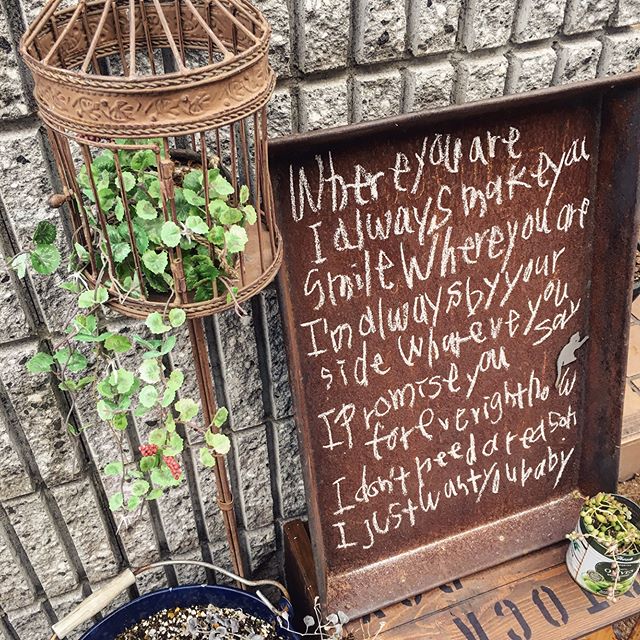 Where you are
I always make you
smile Where you are
I'm always by your
side whatever you say
I Promise you
forever right Now
I don't need a red sofa
I just want you baby